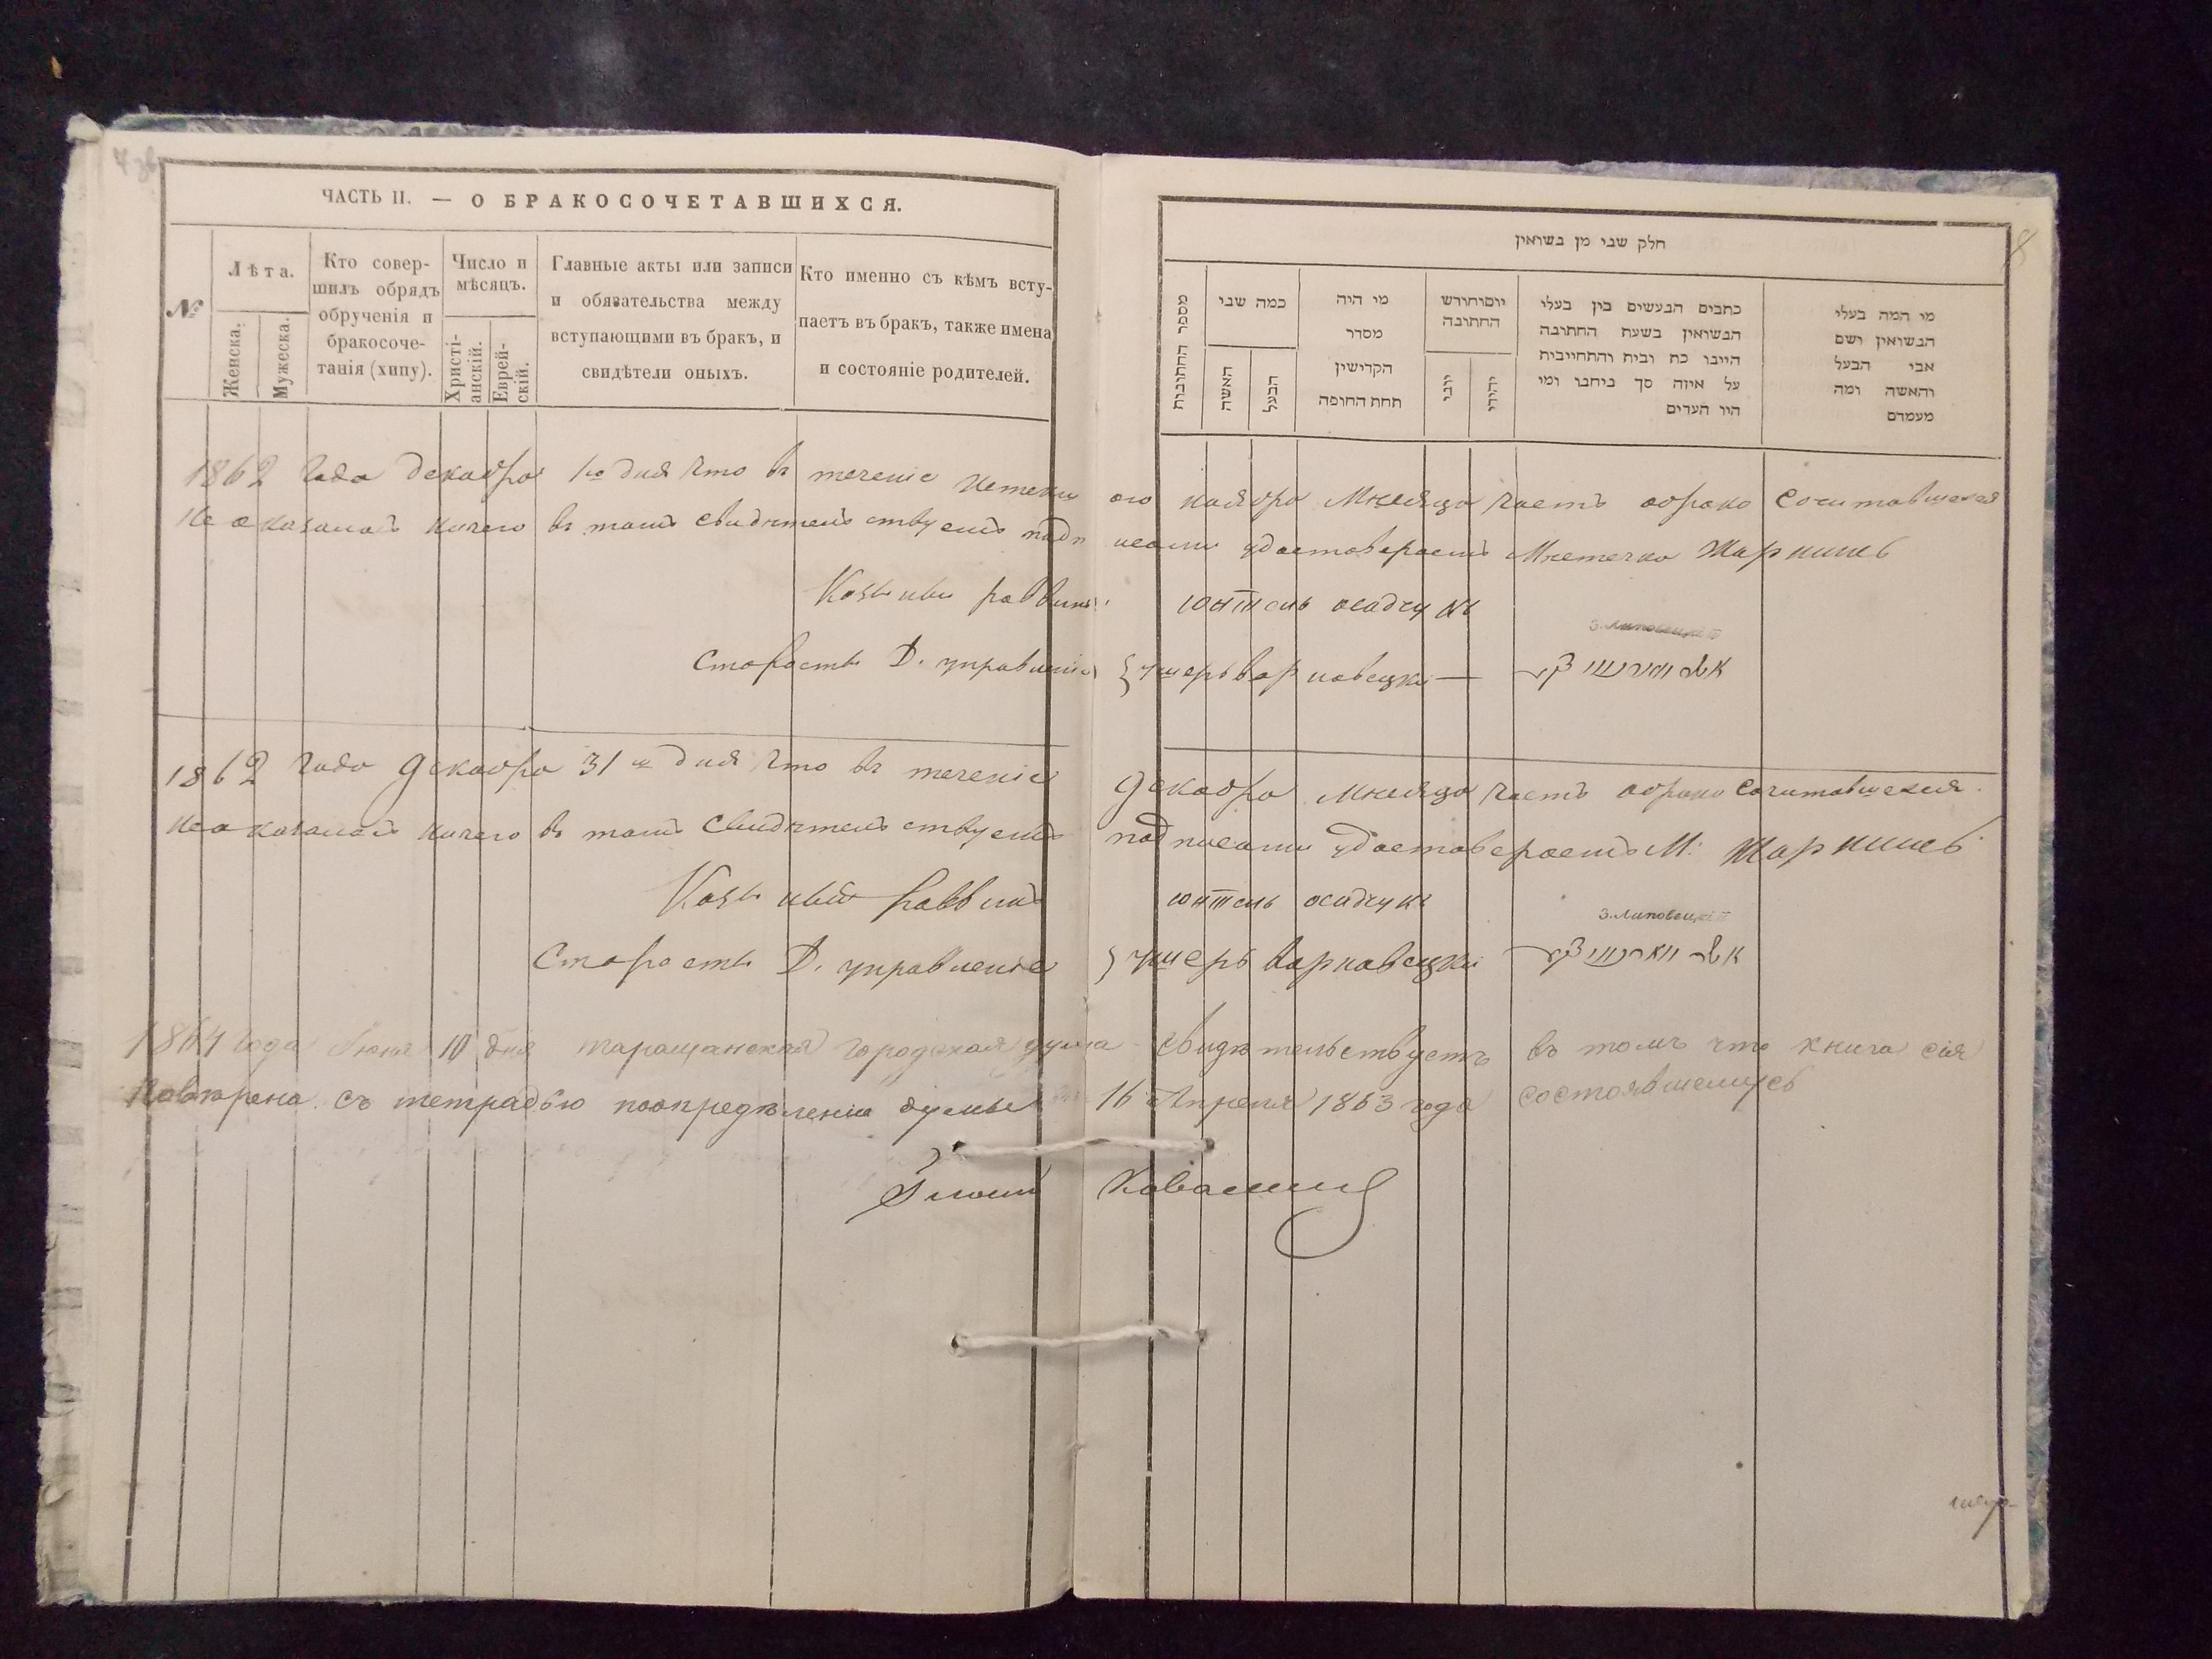 ЧАСТЬ II. — О БРАКОСОЧЕТАВШИХСЯ.
№
Лѣта.
Женска.
Мужеска.
Кто совер-
шилъ обрядъ
обрученія и
бракосоче-
танія (хипу).
Число и
мѣсяцъ.
Христі-
анскій.
Еврей-
скій.
Главные акты или записи
и обязательства между
вступающими въ бракъ, и
свидѣтели оныхъ.
Кто именно съ кѣмъ всту-
паетъ въ бракъ, также имена
и состояніе родителей.
חלק שני מן נשואין
8
מספר החתונות
כמה שני
האשה
הבעל
מי היה
מסדר
הקדישין
תחת החופה
יום וחודש
החתונה
יוני
יהודי
כתבים הנעשים בין בעלי
הנשואין בשעת החתונה
היינו כת ובית והתחייבות
על איזה סך ניתנו ומי
היו העדים
מי המה בעלי
הנשואין ושם
אבי הבעל
והאשה ומה
מעמדם
1862 года декабра 1го дня что въ теченіе истекш ого ноябра Мнсяца часть обрако сочитавшехся
Не оказалось ничего въ томъ свидѣтельствуемъ подп исами удостовераемъ Мнстечко Жарнище
Казъиный раввинъ юнтель осадчукъ
З. Липовецкій
Старосты Д. управленіе } ушеръ варновецки —
1862 года декабра 31го дня что въ теченіе декабра мнсяца часть обрако Сочитавшехся.
Не оказалось ничего въ томъ свидѣтельствуемъ подписами удостовераемъ М: Жарнище
Казъиный раввинъ юнтель осадчукъ
З. Липовецкій
Старосты Д. управленіе } ушеръ варновецки
1864 года Іюня 10 дня таращанская городская дума свидѣтельствуетъ въ томъ что книга сія
Поверена съ тетрадью поопредѣленію думы 16 Апреля 1863 года состоявшемусь